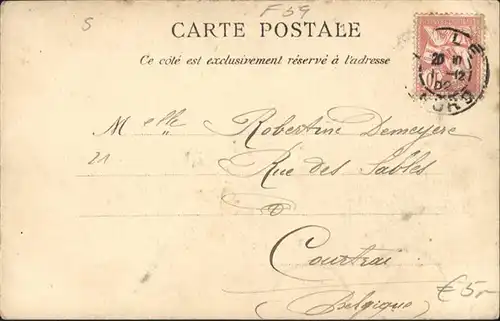 S
F 59
CARTE POSTALE
Ce côté est exclusivement réservé à l'adresse
Melle Robertine Demeyere
21
Rue des Sables
à
Courtrai
(Belgique)
€5,-